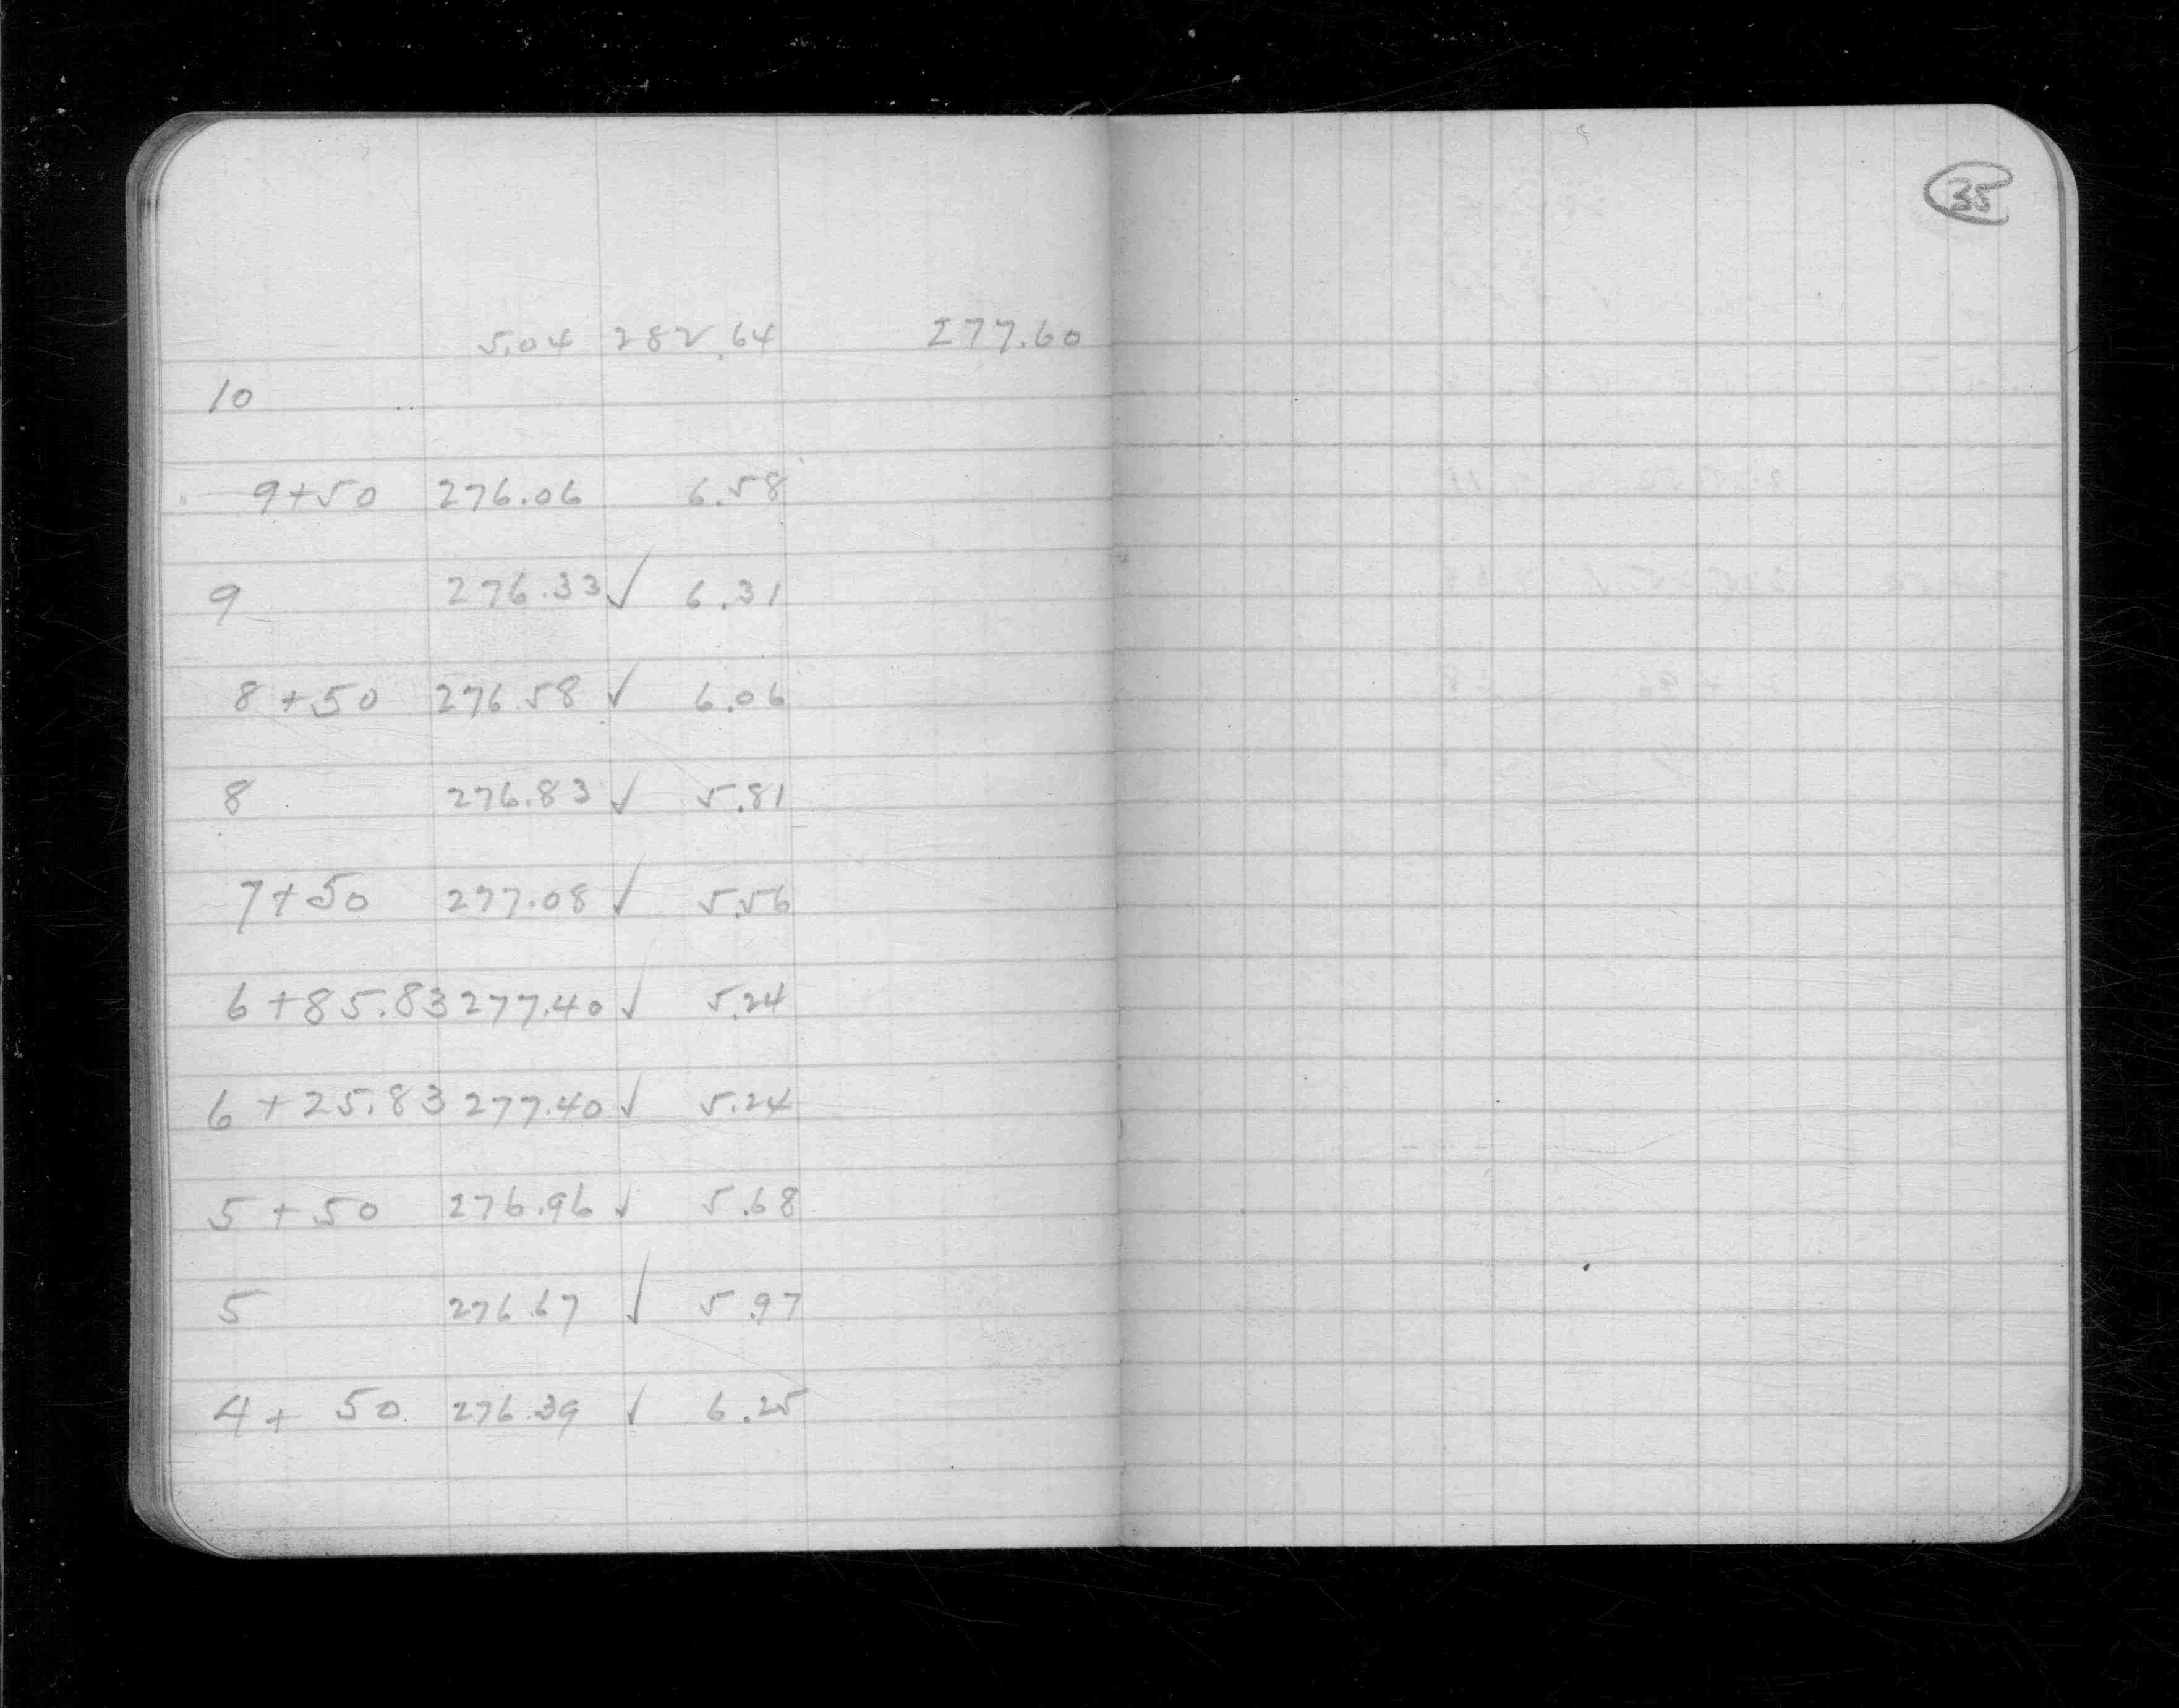 35
5.04 282.64 277.60
10
9+50 276.06 6.58
9 276.33 ✓ 6.31
8+50 276.58 ✓ 6.06
8 276.83 ✓ 5.81
7+50 277.08 ✓ 5.56
6+85.83 277.40 ✓ 5.24
6+25.83 277.40 ✓ 5.24
5+50 276.96 ✓ 5.68
5 276.67 ✓ 5.97
4+50 276.39 ✓ 6.25